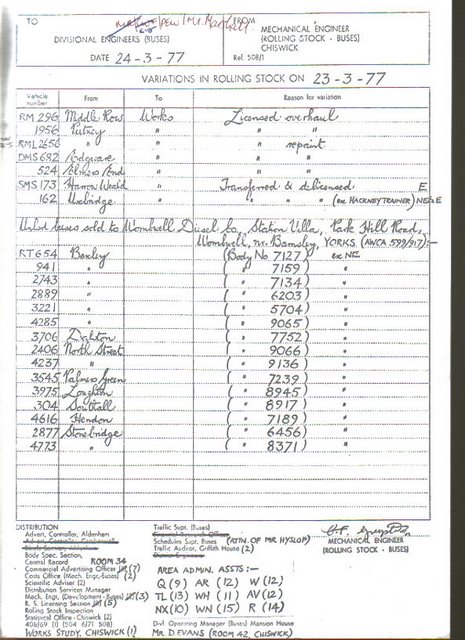 TO
FROM
DIVISIONAL ENGINEERS (BUSES)
MECHANICAL ENGINEER
(ROLLING STOCK - BUSES)
CHISWICK
DATE 24-3-77
Ref. 508/1
VARIATIONS IN ROLLING STOCK ON 23-3-77
Vehicle number From To Reason for variation
RM 296 Middle Row Works Licensed overhaul
1956 Putney " " "
RML 2656 " " " repaint
DMS 682 Edgware " " "
524 Elmers End " " "
SMS 173 Harrow Weald Transferred & delicensed E
162 Uxbridge " " " (ex HACKNEY TRAINER) NE & E
Unlic'd buses sold to Wombwell Diesel Co., Station Villa, Park Hill Road,
Wombwell, nr. Barnsley, YORKS. (AWCA 599/917):-
RT 654 Bexley (Body No 7127) ex NE
941 " ( " 7159) "
2743 " ( " 7134) "
2889 " ( " 6203) "
3221 " ( " 5704) "
4285 " ( " 9065) "
3706 Dalston ( " 7752) "
2406 North Street ( " 9066) "
4237 " ( " 9136) "
3545 Palmers Green ( " 7239) "
3975 Loughton ( " 8945) "
304 Southall ( " 8917) "
4616 Hendon ( " 7189) "
2877 Stonebridge ( " 6456) "
4773 " ( " 8371) "
DISTRIBUTION
Advert. Controller, Aldenham
Body Spec. Section,
Central Record ROOM 34
Commercial Advertising Officer (7)
Costs Office (Mech. Engr. Buses) (2)
Scientific Adviser (2)
Distribution Services Manager
Mech. Engr. (Development - Buses) (3)
R. S. Licensing Section (5)
Rolling Stock Inspection
Statistical Office - Chiswick (2)
408/6F9 (1) 504 6J71 508
WORKS STUDY, CHISWICK (1)
Traffic Supt. (Buses)
Schedules Supt. Buses (ATTN. OF MR HYSLOP)
Traffic Auditor, Griffith House (2)
AREA ADMIN. ASSTS:-
Q (9) AR (12) W (12)
TL (13) WH (11) AV (12)
NX (10) WN (15) R (14)
Divl Operating Manager (Buses) Mansion House
MR. D EVANS (ROOM 42, CHISWICK)
MECHANICAL ENGINEER
(ROLLING STOCK - BUSES)